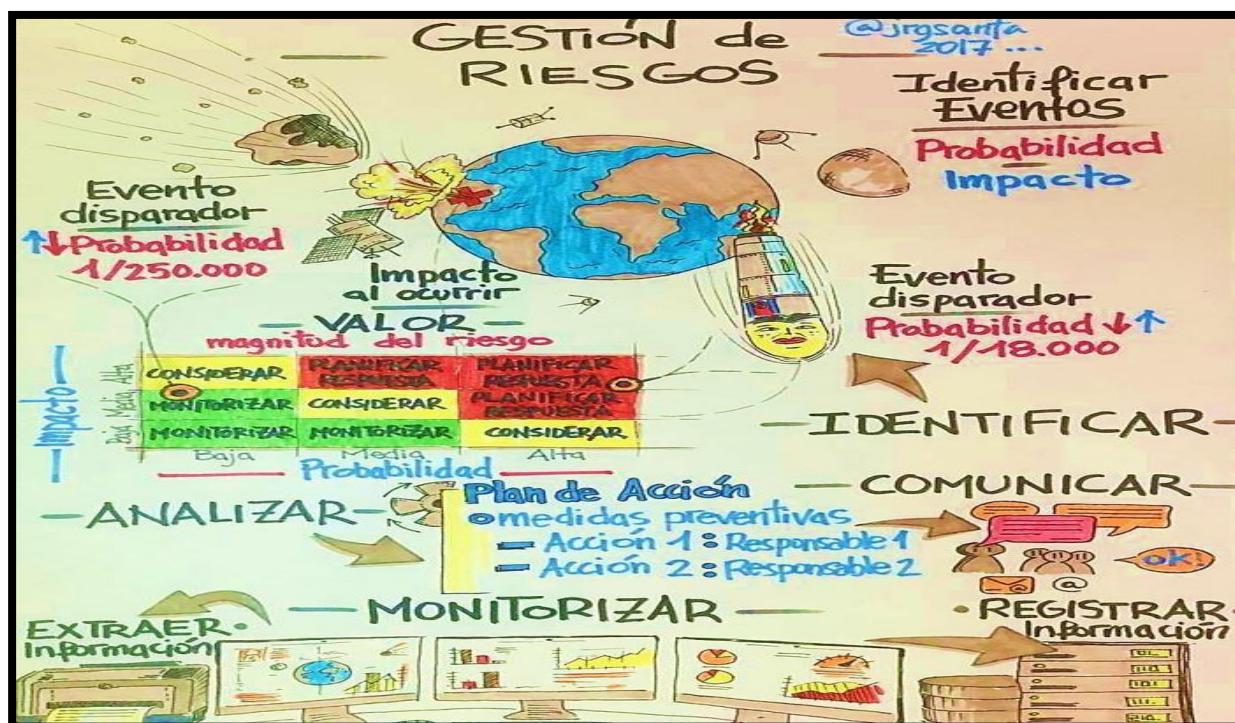 GESTIÓN de
RIESGOS
@jrgsanta
2017 ...
Identificar
Eventos
Probabilidad
Impacto
Evento
disparador
Probabilidad
1/250.000
Impacto
al ocurrir
Evento
disparador
Probabilidad
1/18.000
VALOR
magnitud del riesgo
Impacto
Alta
Media
Baja
CONSIDERAR
PLANIFICAR RESPUESTA
PLANIFICAR RESPUESTA
MONITORIZAR
CONSIDERAR
PLANIFICAR RESPUESTA
MONITORIZAR
MONITORIZAR
CONSIDERAR
Baja
Media
Alta
Probabilidad
IDENTIFICAR
ANALIZAR
Plan de Acción
medidas preventivas
Acción 1 : Responsable 1
Acción 2 : Responsable 2
COMUNICAR
OK!
@
MONITORIZAR
EXTRAER
Información
REGISTRAR
Información